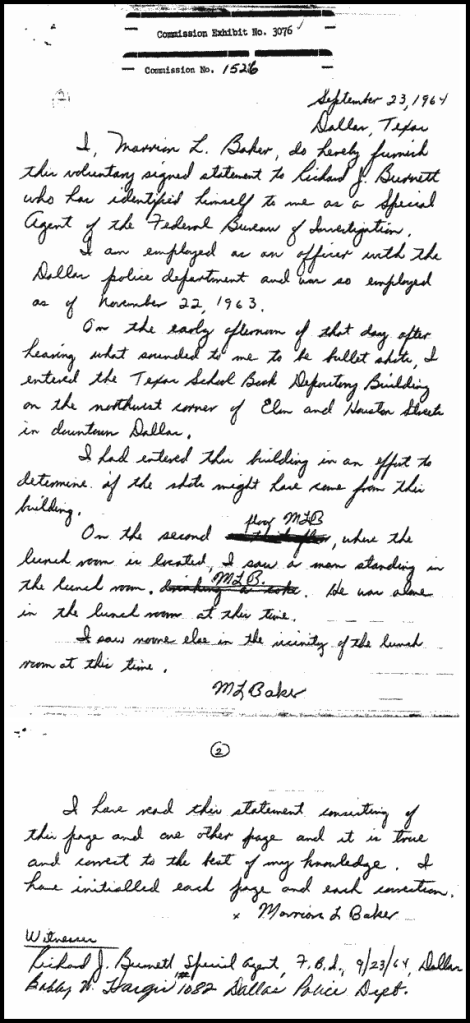 Commission Exhibit No. 3076
Commission No. 1526
September 23, 1964
Dallas, Texas
I, Marrion L. Baker, do hereby furnish
this voluntary signed statement to Richard J. Burnett
who has identified himself to me as a Special
Agent of the Federal Bureau of Investigation.
I am employed as an officer with the
Dallas police department and was so employed
as of November 22, 1963.
On the early afternoon of that day after
hearing what sounded to me to be bullet shots, I
entered the Texas School Book Depository Building
on the northwest corner of Elm and Houston Streets
in downtown Dallas.
I had entered this building in an effort to
determine if the shots might have come from this
building.
floor MLB
On the second , where the
lunch room is located, I saw a man standing in
M.L.B.
the lunch room. drinking a coke. He was alone
in the lunch room at this time.
I saw no one else in the vicinity of the lunch
room at this time.
M L Baker
2
I have read this statement consisting of
this page and one other page and it is true
and correct to the best of my knowledge. I
have initialled each page and each correction.
x Marrion L Baker
Witnesses
Richard J. Burnett Special Agent, F.B.I., 9/23/64, Dallas
Bobby W. Hargis 1082 Dallas Police Dept.